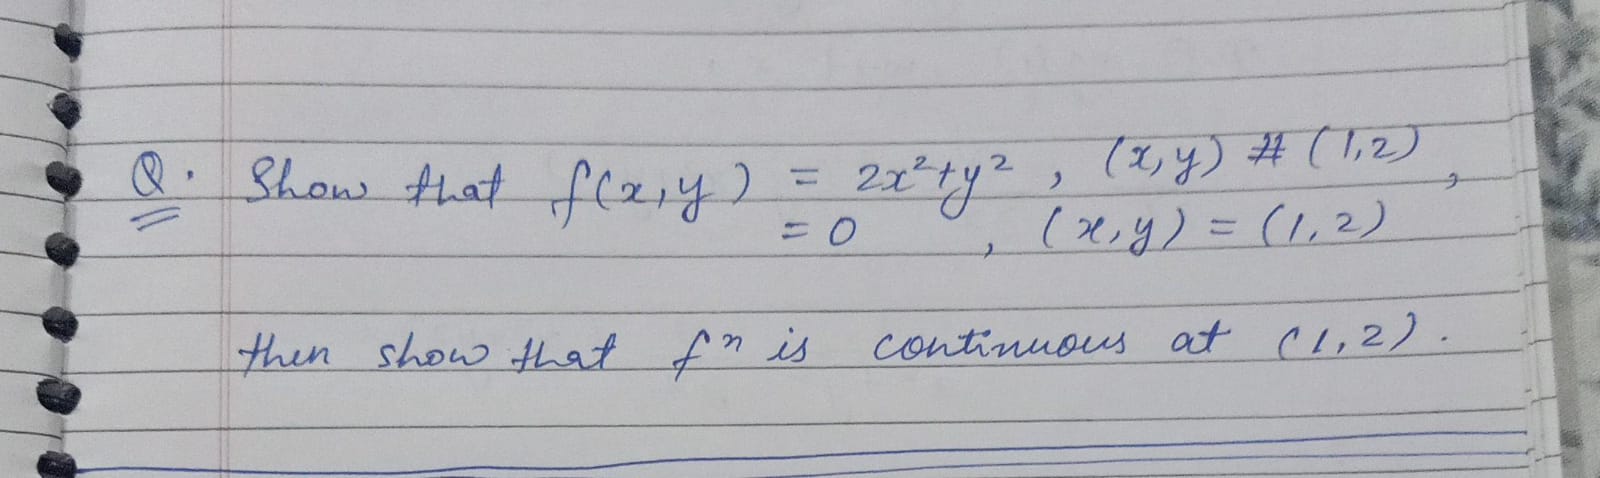 Q. Show that f(x,y) = 2x²+y² , (x,y) ≠ (1,2) ,
= 0 , (x,y) = (1,2)
then show that fⁿ is continuous at (1,2).